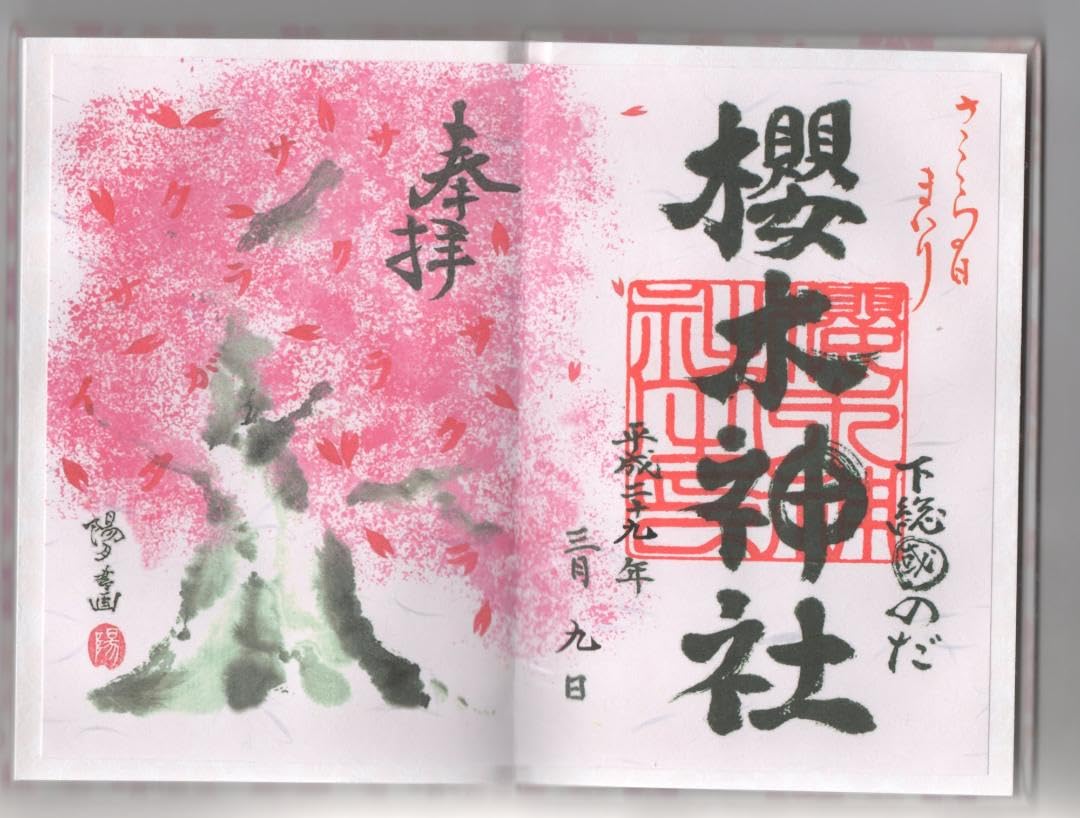 さくらの日
まいり
下総國のだ
櫻木神社
平成二十九年
三月九日
奉拝
サクラ
サクラ
サクラ
ガ
サイタ
陽夕書画
陽